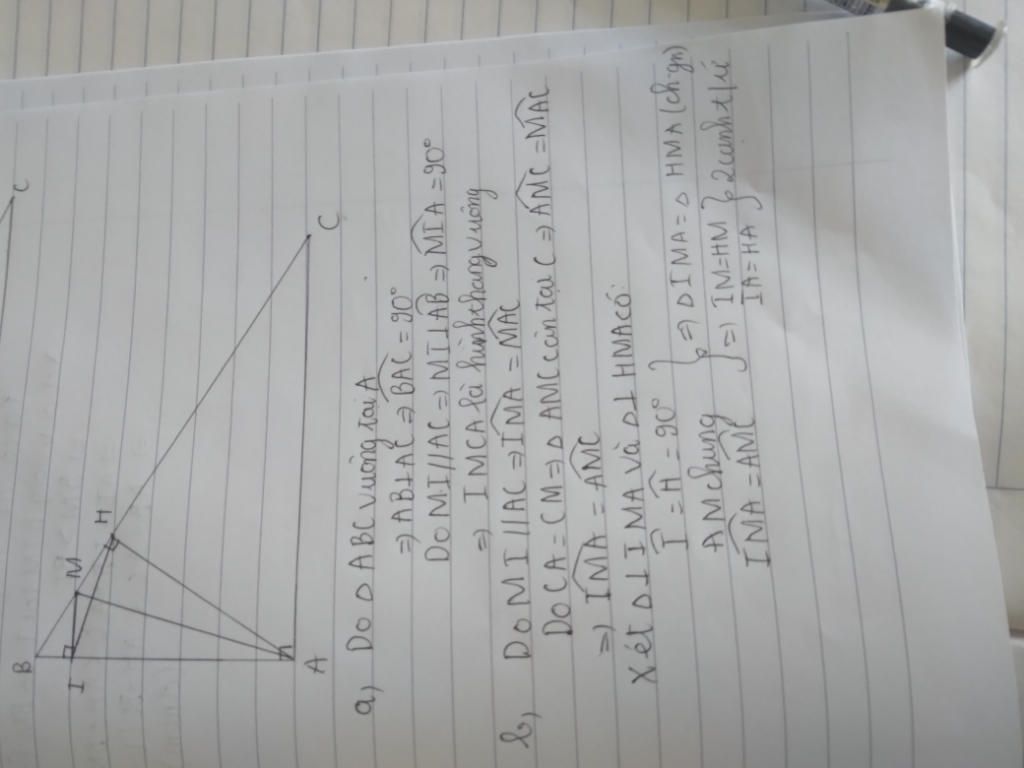 C
B
M
H
I
A
C
a, Do △ ABC vuông tại A
=> AB⊥AC => \widehat{BAC} = 90°
Do MI//AC => MI⊥AB => \widehat{MIA} = 90°
=> IMCA là hình thang vuông
b, Do MI//AC => \widehat{IMA} = \widehat{MAC}
Do CA = CM => △ AMC cân tại C => \widehat{AMC} = \widehat{MAC}
=> \widehat{IMA} = \widehat{AMC}
Xét △⊥ IMA và △⊥ HMA có:
\widehat{I} = \widehat{A} = 90° }
AM chung } => △ IMA = △ HMA (ch.gn)
\widehat{IMA} = \widehat{AMC} } => IM = HM } 2 cạnh t/ứ
IA = HA